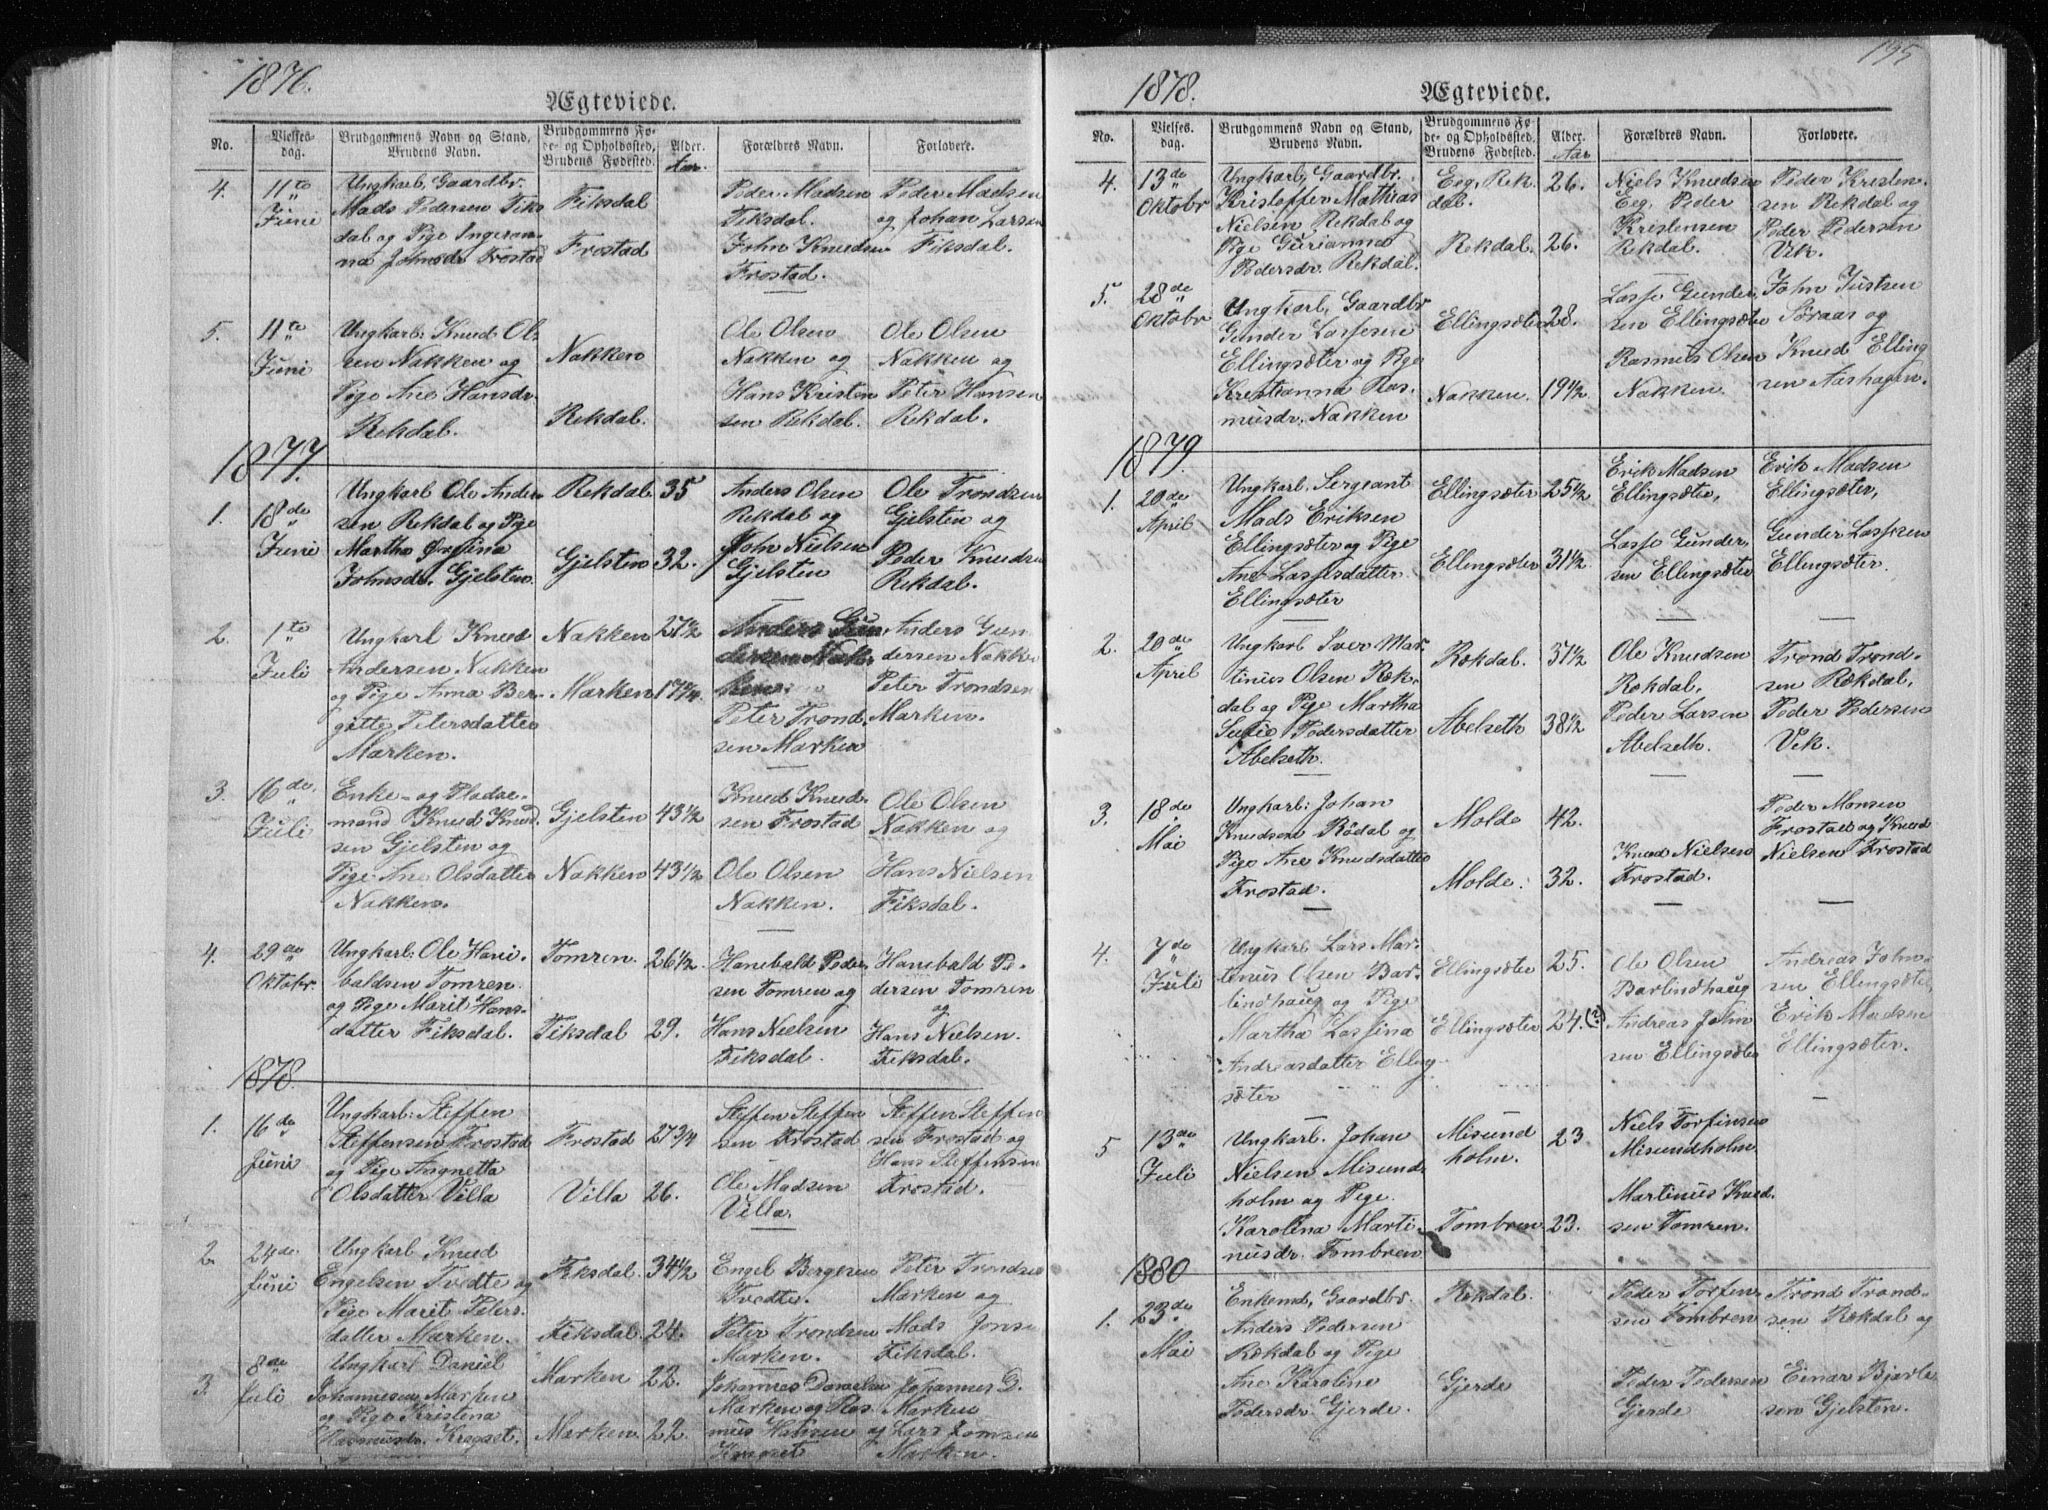 1876.
Ægteviede.
No.
Vielses-
dag.
Brudgommens Navn og Stand,
Brudens Navn.
Brudgommens Fø-
de- og Opholdssted,
Brudens Fødested.
Alder.
Aar.
Forældres Navn.
Forlovere.
4.
11te
Juni
Ungkarl, Gaardbr.
Mads Pedersen Fiks
dal og Pige Ingeran-
na Johnsdr. Frostad
Fiksdal
Frostad
Peder Madsen
Fiksdal.
John Knudsen
Frostad.
Peder Madsen
og Johan Larsen
Fiksdal.
5.
11te
Juni
Ungkarl: Knud Ol-
sen Nakken og
Pige Ane Hansdr.
Rekdal.
Nakken
Rekdal.
Ole Olsen
Nakken og
Hans Kristen
sen Rekdal.
Ole Olsen
Nakken og
Peter Hansen
Rekdal.
1877.
1.
18de
Juni
Ungkarl Ole Ander
sen Rekdal og Pige
Martha Orfina
Johnsdr. Gjelsten.
Rekdal
Gjelsten
35
32.
Anders Olsen
Rekdal og
John Nielsen
Gjelsten
Ole Trondsen
Gjelsten og
Peder Knudsen
Rekdal.
2.
1te
Juli
Ungkarl Knud
Andersen Nakken
og Pige Anna Ber-
gitte Petersdatter
Marken.
Nakken
Marken
27½
17¾
Anders Gun
dersen Nak-
ken
Peter Trond
sen Marken
Anders Gun
dersen Nakke
Peter Trondsen
Marken.
3.
16de
Juli
Enke- og Pladse-
mand Knud Knud
sen Gjelsten og
Pige Ane Olsdatter
Nakken.
Gjelsten
Nakken
43½
43½
Knud Knud-
sen Frostad
Ole Olsen
Nakken.
Ole Olsen
Nakken og
Hans Nielsen
Fiksdal.
4.
29de
Oktobr.
Ungkarl: Ole Hane-
baldsen Tomren
og Pige Marit Hans-
datter Fiksdal.
Tomren.
Fiksdal
26½.
29.
Hanebald Peder
sen Tomren og
Hans Nielsen
Fiksdal.
Hanebald Pe-
dersen Tomren
og
Hans Nielsen.
Fiksdal.
1878.
1.
16de
Juni
Ungkarl: Steffen
Steffensen Frostad
og Pige Angnetta
Olsdatter Villa
Frostad
Villa
27¾
26.
Steffen Steffen
sen Frostad
Ole Madsen
Villa.
Steffen Steffen
sen Frostad og
Hans Steffensen
Frostad.
2.
24de
Juni
Ungkarl Knud
Engelsen Tvedte og
Pige Marit Peters
datter Marken.
Fiksdal.
Fiksdal.
34½
24.
Engel Bergesen
Tvedte.
Peter Trondsen
Marken.
Peter Trondsen
Marken og
Mads Jonse
Fiksdal.
3.
8de
Juli
Ungkarl Daniel
Johannesen Marken
og Pige Kristina
Rasmusdr. Kragset.
Marken
Marken.
22.
22.
Johannes Danielsn
Marken og Ras
mus Hansen
Kragset
Johannes D.
Marken
og Lars Jonsen
Marken.
195
1878.
Ægteviede.
No.
Vielses-
dag.
Brudgommens Navn og Stand,
Brudens Navn.
Brudgommens Fø-
de- og Opholdssted,
Brudens Fødested.
Alder.
Aar
Forældres Navn.
Forlovere.
4.
13de
Oktobr
Ungkarl, Gaardbr.
Kristoffer Mathias
Nielsen Rekdal og
Pige Gurianna
Pedersdr. Rekdal.
Eeg, Rek
dal.
Rekdal.
26.
26.
Niels Knudsen
Eeg, Peder
Kristensen
Rekdal.
Peder Kristen-
sen Rekdal og
Peder Pedersen
Vik.
5.
28de
Oktobr
Ungkarl, Gaardbr
Gunder Lassesen
Ellingsæter og Pige
Kristianna Ras-
musdr. Nakken
Ellingsæter
Nakken.
28.
19½
Lasse Gunder
sen Ellingsæter
Rasmus Olsen
Nakken.
John Justsen
Søraas og
Knud Elling
sen Aashagen.
1879.
1.
20de
April
Ungkarl. Sergeant
Mads Eriksen
Ellingsæter og Pige
Ane Lassesdatter
Ellingsæter
Ellingsæter
Ellingsæter
25½
31½
Erik Madsen
Ellingsæter,
Lasse Gunder,
sen Ellingsæter
Erik Madsen
Ellingsæter,
Gunder Lassesen
Ellingsæter.
2.
20de
April
Ungkarl Iver Mar-
tinus Olsen Rek-
dal og Pige Martha
Pedersdatter
Abelseth.
Rekdal.
Abelseth
31½
38½
Ole Knudsen
Rekdal,
Peder Larsen
Abelseth.
Trond Trond-
sen Rekdal,
Peder Pedersen
Vik.
3.
18de
Mai
Ungkarl: Johan
Knudsen Rödal og
Pige Ane Knudsdatter
Frostad.
Molde
Molde.
42.
32.
Knud Nielsen
Frostad.
Peder Monsen
Frostad og Knud
Nielsen Frostad
4.
7de
Juli
Ungkarl Lars Mar-
tinus Olsen Bar-
lindhaug og Pige
Martha Lassina
Andreasdatter Elling-
sæter
Ellingsæter
Ellingsæter
25.
24.(?)
Ole Olsen
Barlindhaug
Andreas John
sen Ellingsæter
Andreas John-
sen Ellingsæter,
Erik Madsen
Ellingsæter.
5
13de
Juli
Ungkarl. Johan
Nielsen Misund
holm og Pige
Karolina Marti-
nusdr. Tombren
Misund
holm.
Tombren
23
23.
Niels Torfinsen
Misundholm
Martinus Knud-
sen Tomren.
1880
1.
23de
Mai
Enkemd, Gaardbr.
Anders Pedersen
Rekdal og Pige
Ane Karoline
Pedersdr. Gjerde.
Rekdal.
Gjerde
Peder Torfin-
sen Tombren
Peder Pedersen
Gjerde
Trond Trond-
sen Rekdal og
Einar Bjarte
sen Gjelsten.